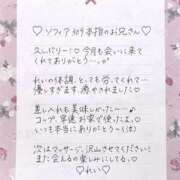 ♡ソフィア309 本指のお兄さん♡
久しバリー！♡今月も会いに来て
くれてありがとう..♡
れいの体調、とても労ってくれて…
優しすぎます。癒やされました♡
差し入れも美味しかった〜♪
コップ、早速お家で使ったよ。
いつも本当にありがとう〜(太)
次はマッサージ、沢山させてください！
また会えるの楽しみにしてる。♡
♡れい♡